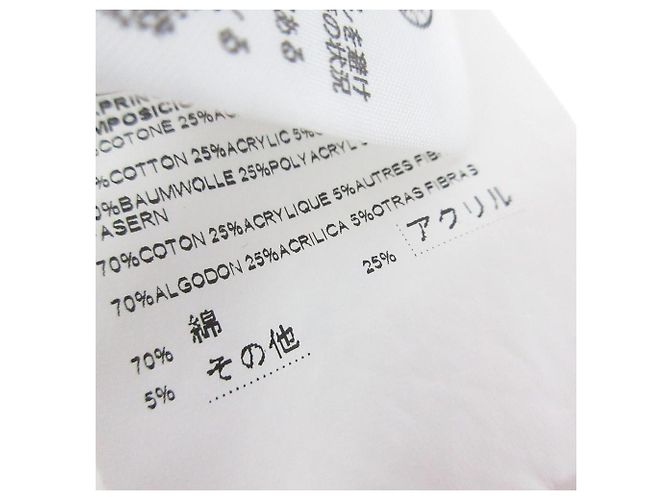 ンを避け
の状況
ある
る
APRIN
MPOSICIO
COTONE 25%AC
%COTTON 25%ACRYLIC 5%
0%BAUMWOLLE 25%POLYACRYL
ASERN
70%COTON 25%ACRYLIQUE 5%AUTRES FIB
70%ALGODON 25%ACRILICA 5%OTRAS FIBRAS
70% 綿 25% アクリル
5% その他